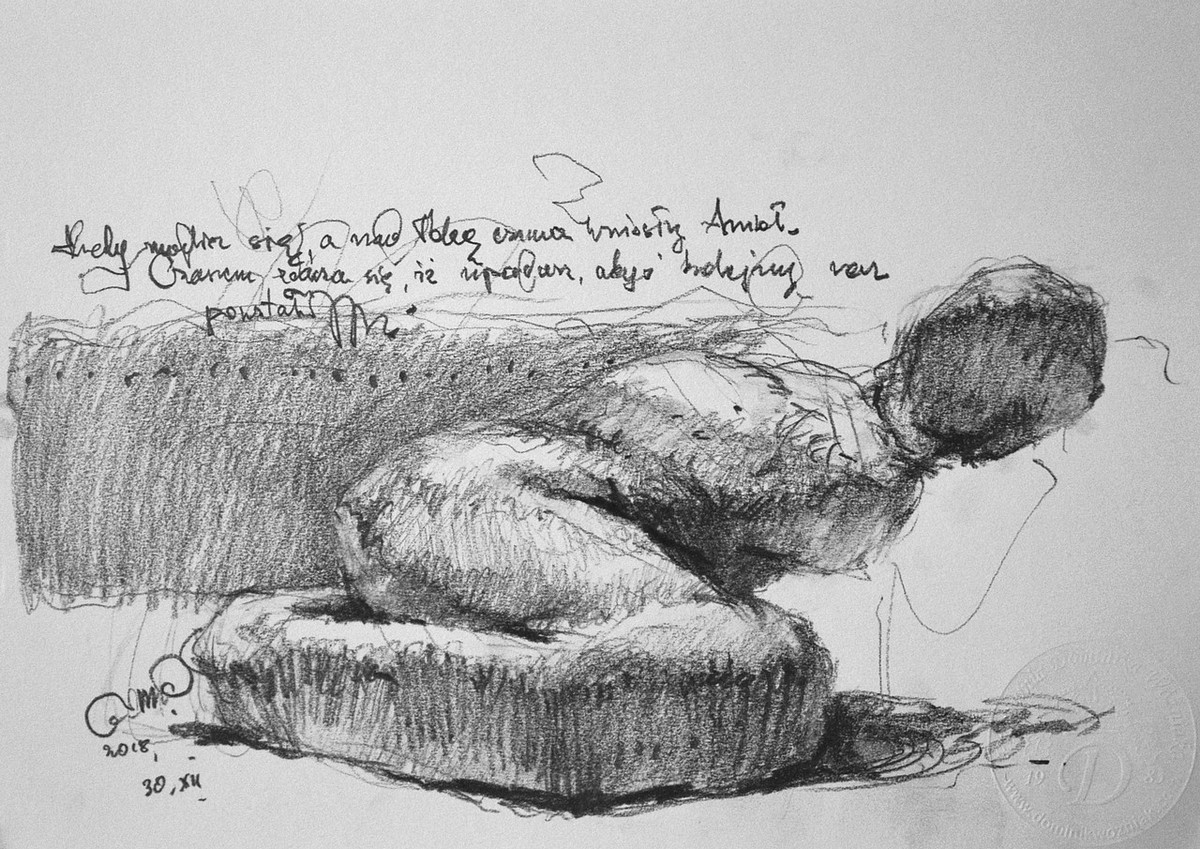 Kiedy modlisz się, a nad Tobą czuwa wniosły Anioł.
Czasem zdarza się, iż upadasz, abyś kolejny raz
powstał
2018,
30, XII
19 D 83
www.dominikwozniak.